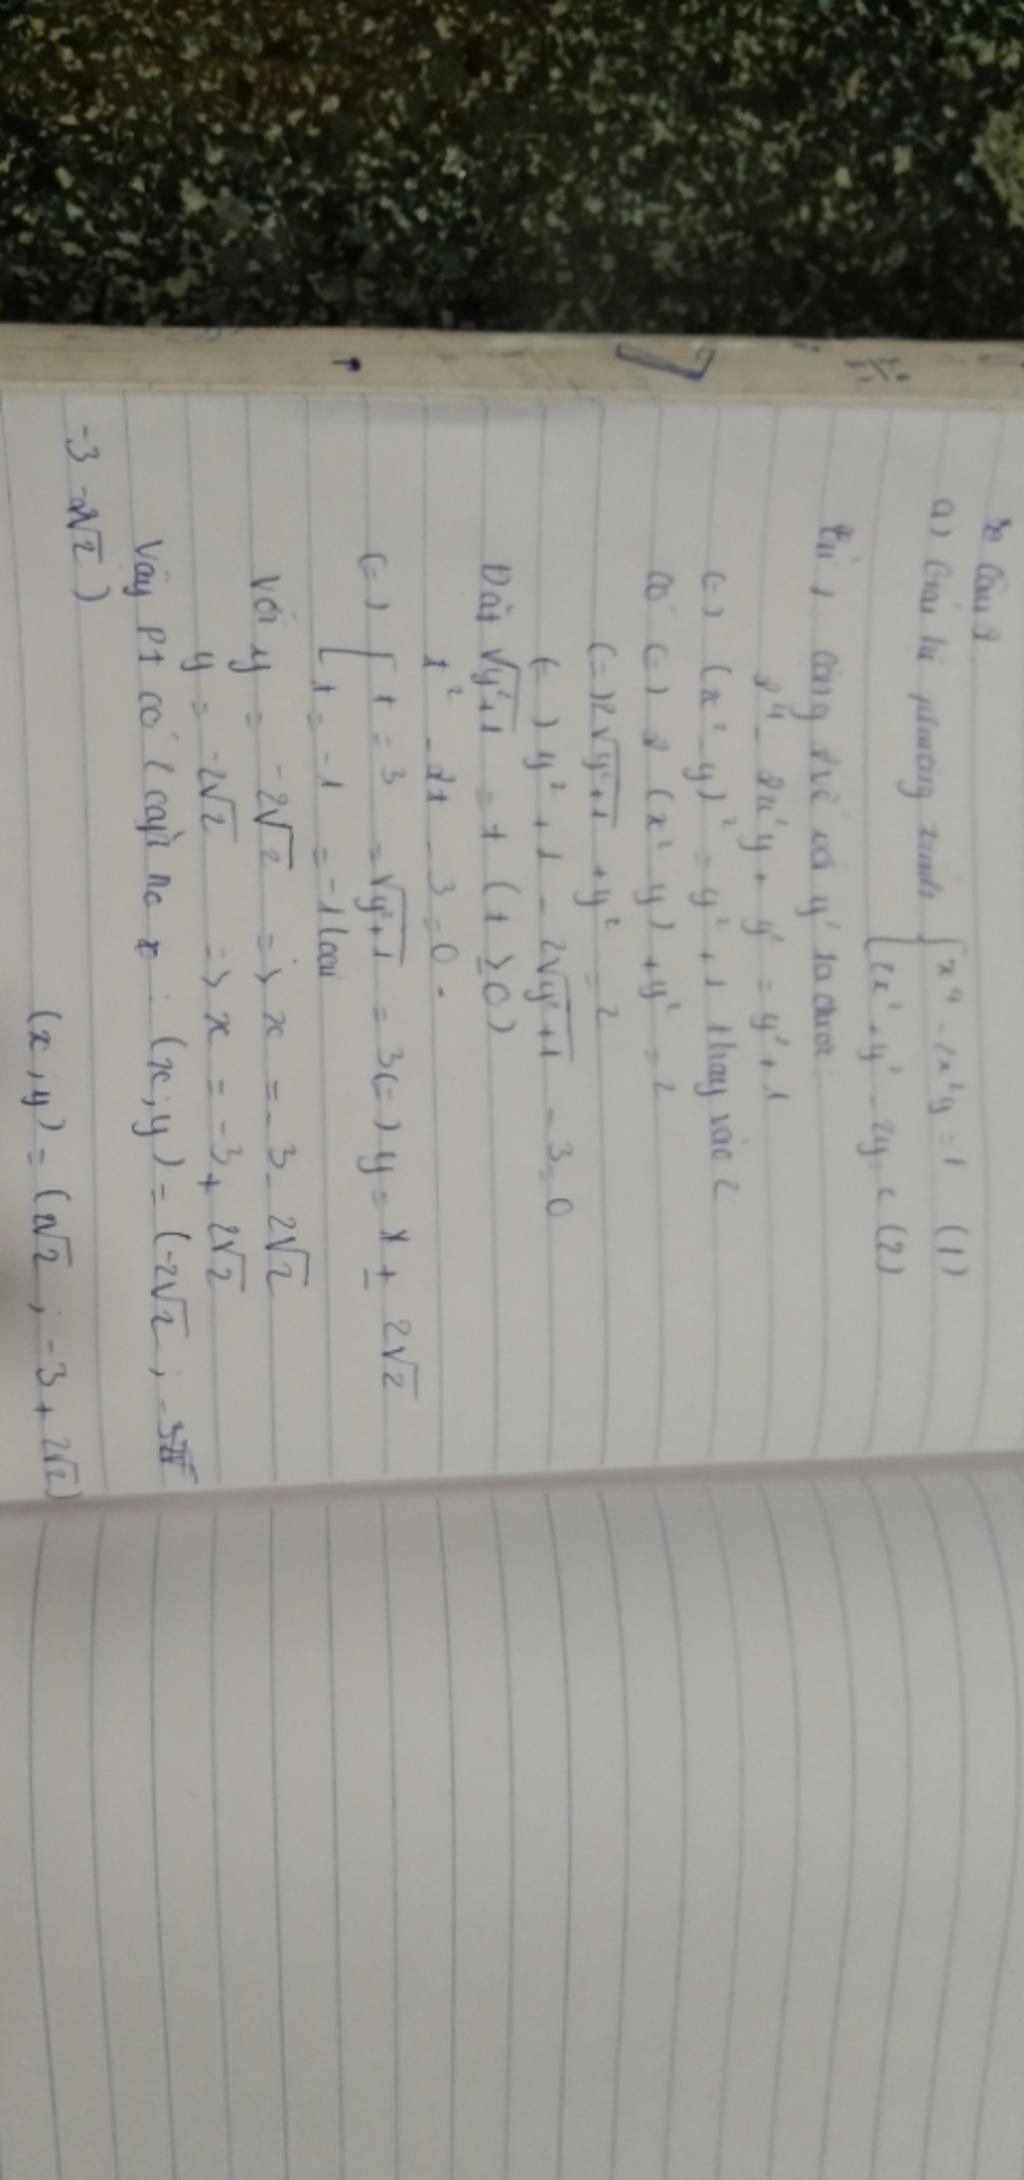 a) Giải hệ phương trình { x⁴ - 2x²y = 1 (1)
2x² + y² - 2y = 2 (2)
cộng 2 vế và y² ta được
- 2x²y + y² = y² + 1
(=) (x² - y)² = y² + 1 thay vào 2
có (=) 2 (x² - y) + y² = 2
(=) 2√y²+1 + y² = 2
(=) y² + 1 - 2√y²+1 - 3 = 0
Đặt √y²+1 = t (t ≥ 0)
t² - 2t - 3 = 0.
(=) [ t = 3 = √y²+1 = 3 (=) y = ± 2√2
t = -1 = -1 loại
Với y = -2√2 => x = -3 - 2√2
y = -2√2 => x = -3 + 2√2
Vậy Pt có 2 cặp no : (x; y) = (-2√2 ; -3
-3 -2√2 )
(x, y) = (2√2 ; -3 + 2√2)